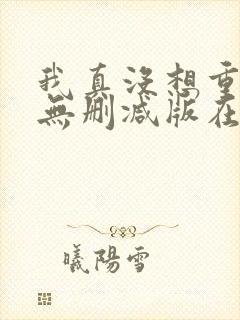 我真沒想重
無刪減版在
曦陽雪